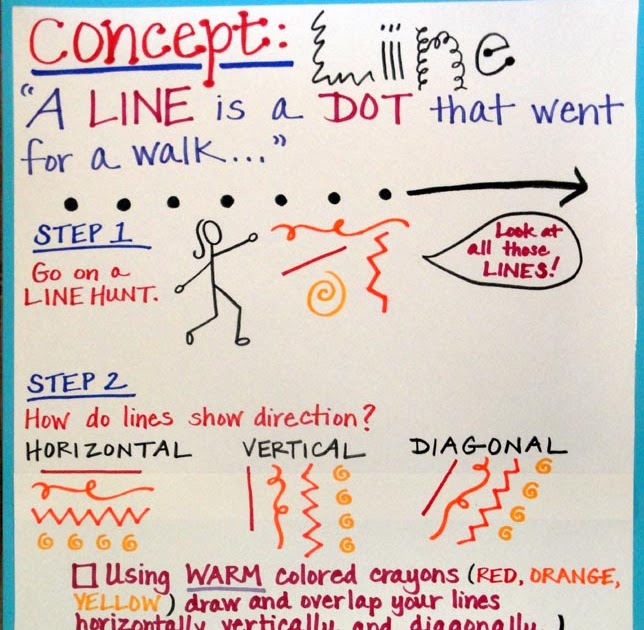 Concept: Line
"A LINE is a DOT that went
for a walk..."
STEP 1
Go on a
LINE HUNT.
Look at
all those
LINES!
STEP 2
How do lines show direction?
HORIZONTAL VERTICAL DIAGONAL
Using WARM colored crayons (RED, ORANGE,
YELLOW) draw and overlap your lines
horizontally, vertically, and diagonally.)